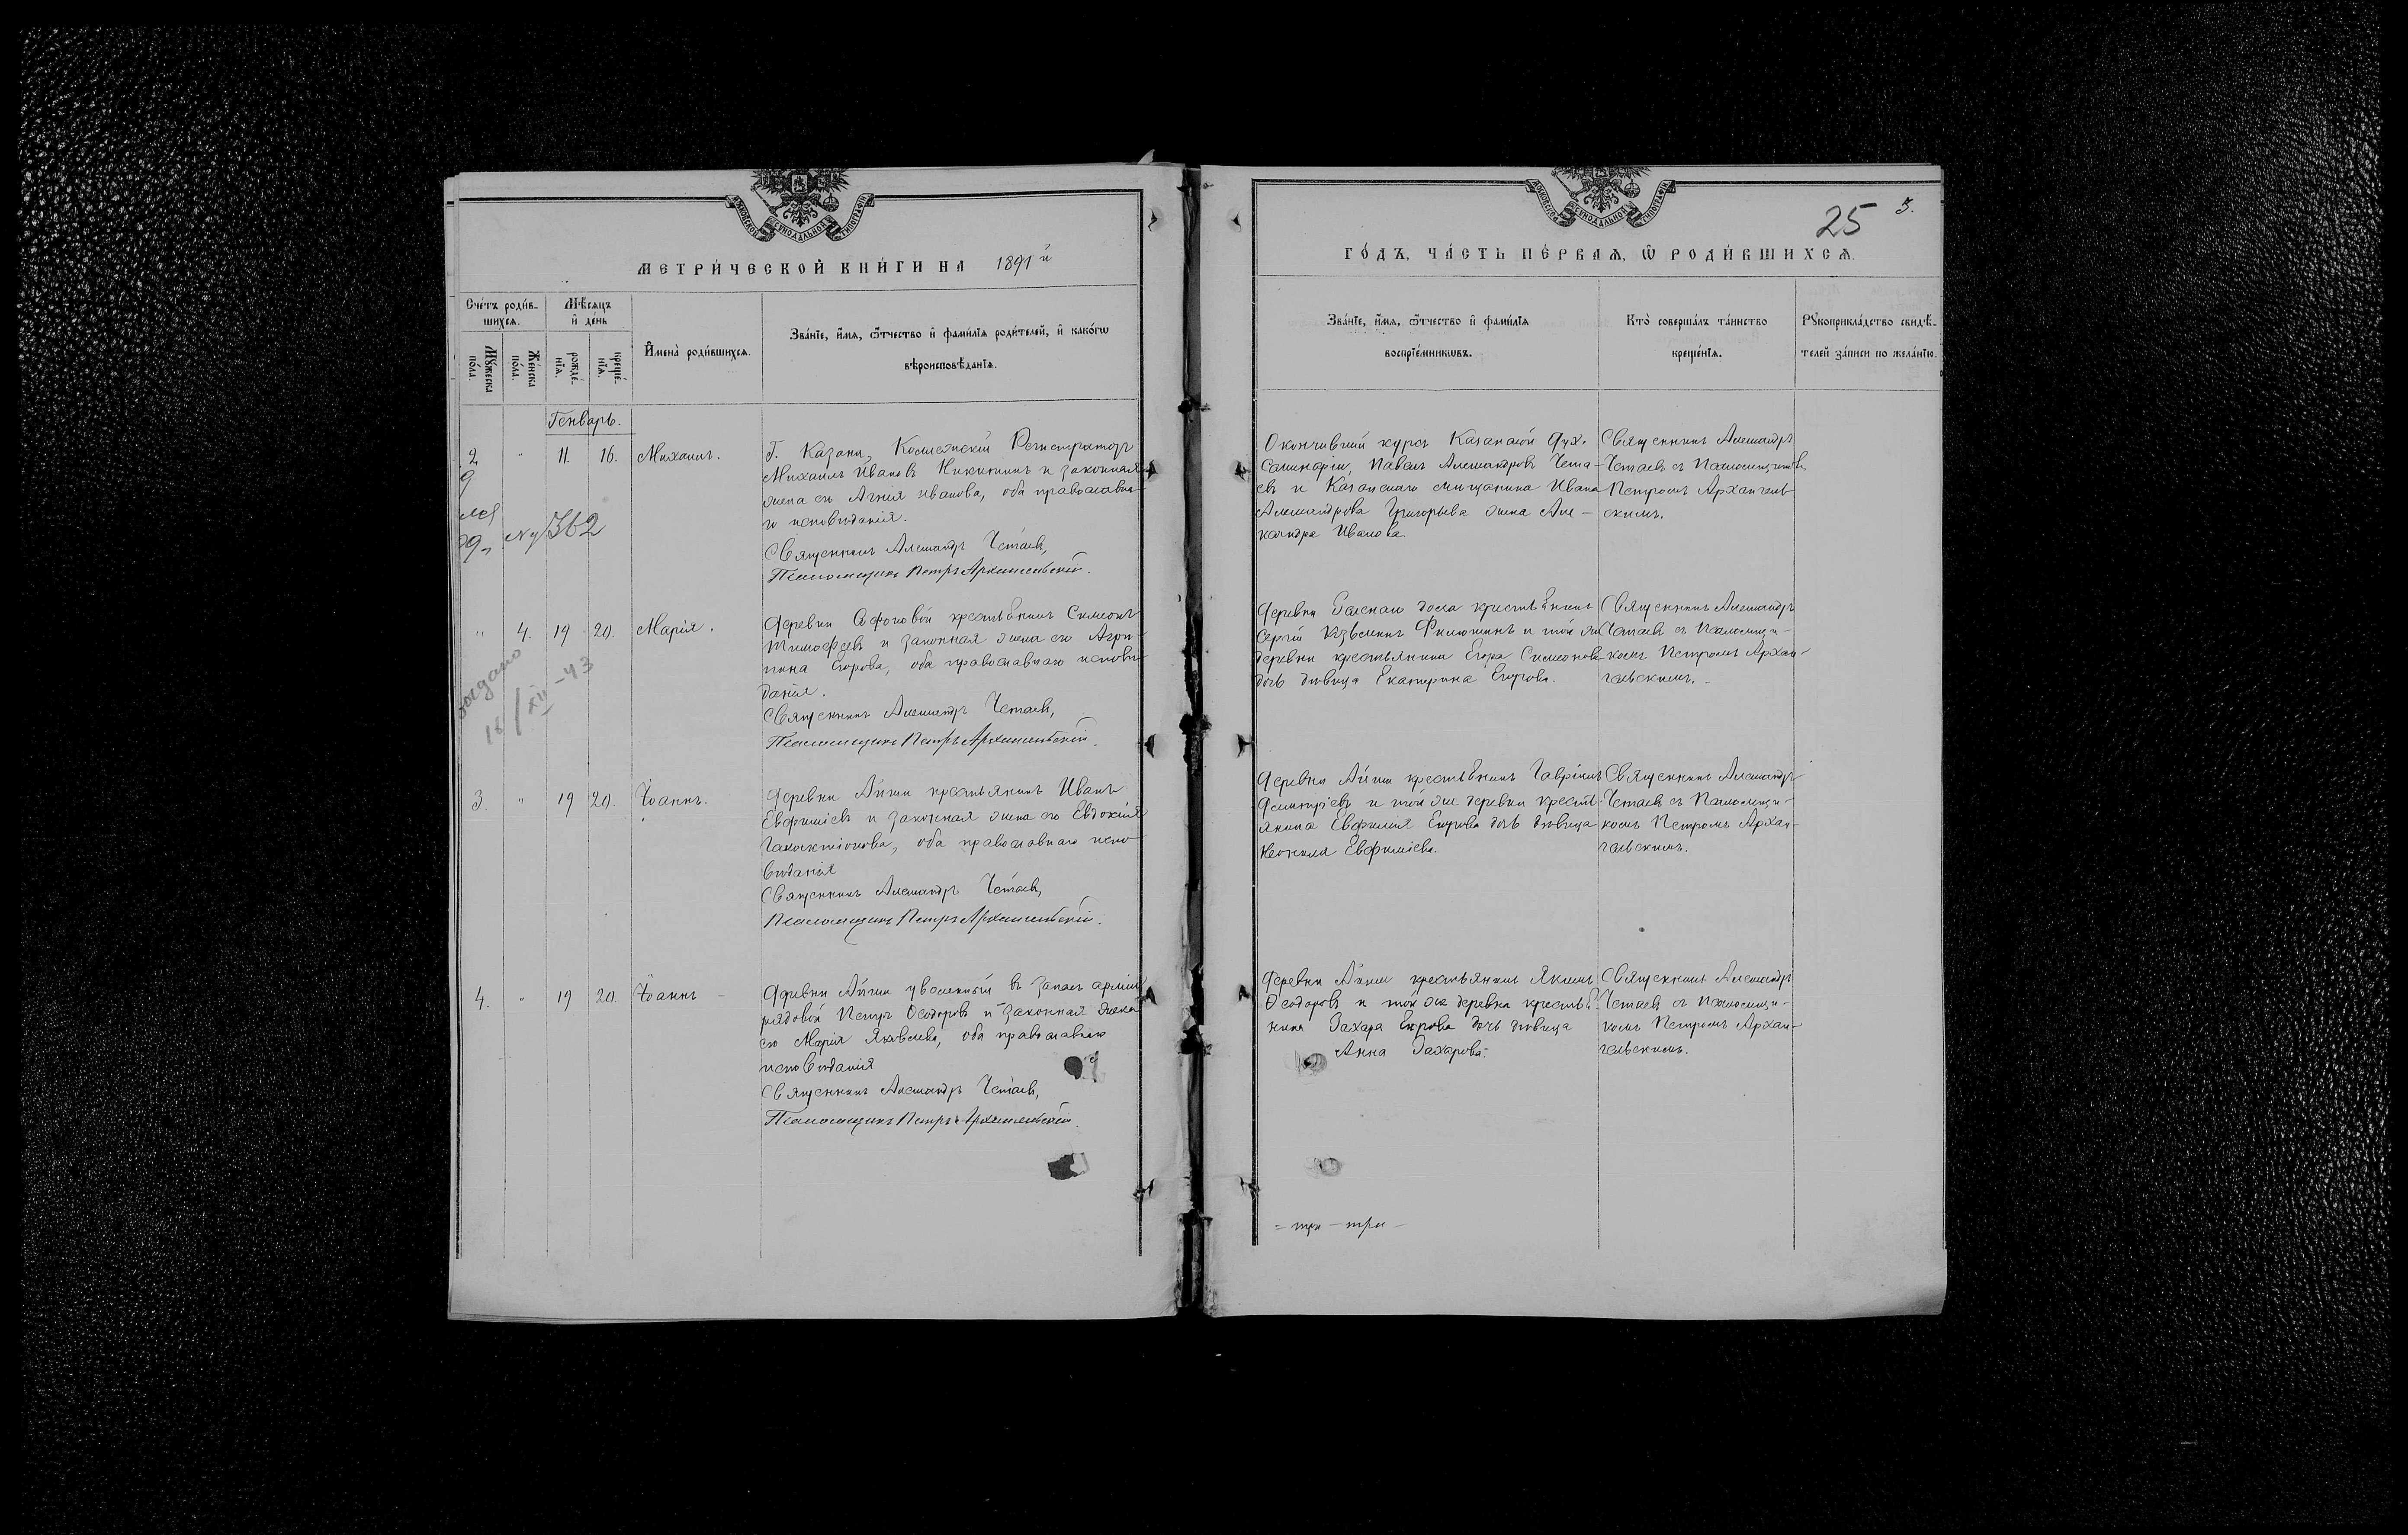 МОСКОВСКОЙ СѴНОДАЛЬНОЙ ТИПОГРАФІИ
МЕТРИ́ЧЕСКОЙ КНИ́ГИ НА 1891й
Сче́тъ роди́в-
шихсѧ.
Мѣ́сѧцъ
и҆ де́нь
Мꙋ́жеска
по́ла.
Же́нска
по́ла.
рожде́-
нїѧ.
креще́-
нїѧ.
И҆мена̀ роди́вшихсѧ.
Зва́нїе, и҆́мѧ, ѻ҆́тчество и҆ фами́лїѧ роди́телей, и҆ како́гѡ
вѣроисповѣ́данїѧ.
Генварь.
2 " 11. 16. Михаилъ.
Г. Казани, Коллежскій Регистраторъ
Михаилъ Ивановъ Никитинъ и законная
жена его Агнія Иванова, оба православна-
го исповѣданія.
Священникъ Александръ Четаевъ,
Псаломщикъ Петръ Архангельскій.
№ 362
" 4. 19 20. Марія.
Деревни Софоновой крестьянинъ Симеонъ
Тимофеевъ и законная жена его Агрип-
пина Егорова, оба православнаго исповѣ-
данія.
Священникъ Александръ Четаевъ,
Псаломщикъ Петръ Архангельскій.
выдано
18/XII-43
3. " 19 20. Іоаннъ.
Деревни Айши крестьянинъ Иванъ
Евфиміевъ и законная жена его Евдокія
Галактіонова, оба православнаго испо-
вѣданія
Священникъ Александръ Четаевъ,
Псаломщикъ Петръ Архангельскій.
4. " 19 20. Іоаннъ
Деревни Айши уволенный въ запасъ арміи
рядовой Петръ Ѳеодоровъ и законная жена
его Марія Яковлева, оба православнаго
исповѣданія
Священникъ Александръ Четаевъ,
Псаломщикъ Петръ Архангельскій.
МОСКОВСКОЙ СѴНОДАЛЬНОЙ ТИПОГРАФІИ
25 3.
ГО́ДЪ, ЧА́СТЬ ПЕ́РВАѦ, Ѡ҆ РОДИ́ВШИХСѦ.
Зва́нїе, и҆́мѧ, ѻ҆́тчество и҆ фами́лїѧ
воспрїе́мникѡвъ.
Кто̀ соверша́лъ та́инство
креще́нїѧ.
Рꙋкоприкла́дство свидѣ́-
телей за́писи по жела́нїю.
Окончившій курсъ Казанской Дух.
Семинаріи, Павелъ Александровъ Чета-
евъ и Казанскаго мѣщанина Ивана
Александрова Григорьева жена Але-
ксандра Иванова.
Священникъ Александръ
Четаевъ съ Псаломщикомъ
Петромъ Архангель-
скимъ.
дома крестьянинъ
Сергій Козьминъ Филюшинъ и той же
деревни крестьянина Егора Симеонова
дочь дѣвица Екатерина Егорова.
Священникъ Александръ
Четаевъ съ Псаломщи-
комъ Петромъ Архан-
гельскимъ.
Деревни Айши крестьянинъ Гавріилъ
Димитріевъ и той же деревни кресть-
янина Евфимія Егорова дочь дѣвица
Неонила Евфиміева.
Священникъ Александръ
Четаевъ съ Псаломщи-
комъ Петромъ Архан-
гельскимъ.
Деревни Айши крестьянинъ Якимъ
Ѳеодоровъ и той же деревни крестья-
нина Захара Егорова дочь дѣвица
Анна Захарова.
Священникъ Александръ
Четаевъ съ Псаломщи-
комъ Петромъ Архан-
гельскимъ.
= три - три -